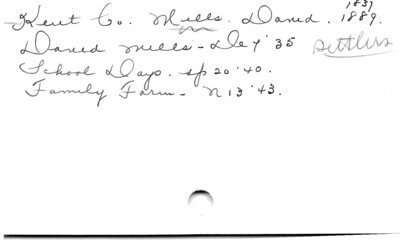 1837
Kent Co. Mills. David. 1889.
David Mills - De 7 '35 Settlers
School Days. sp 20 '40.
Family Farm - N 13 '43.